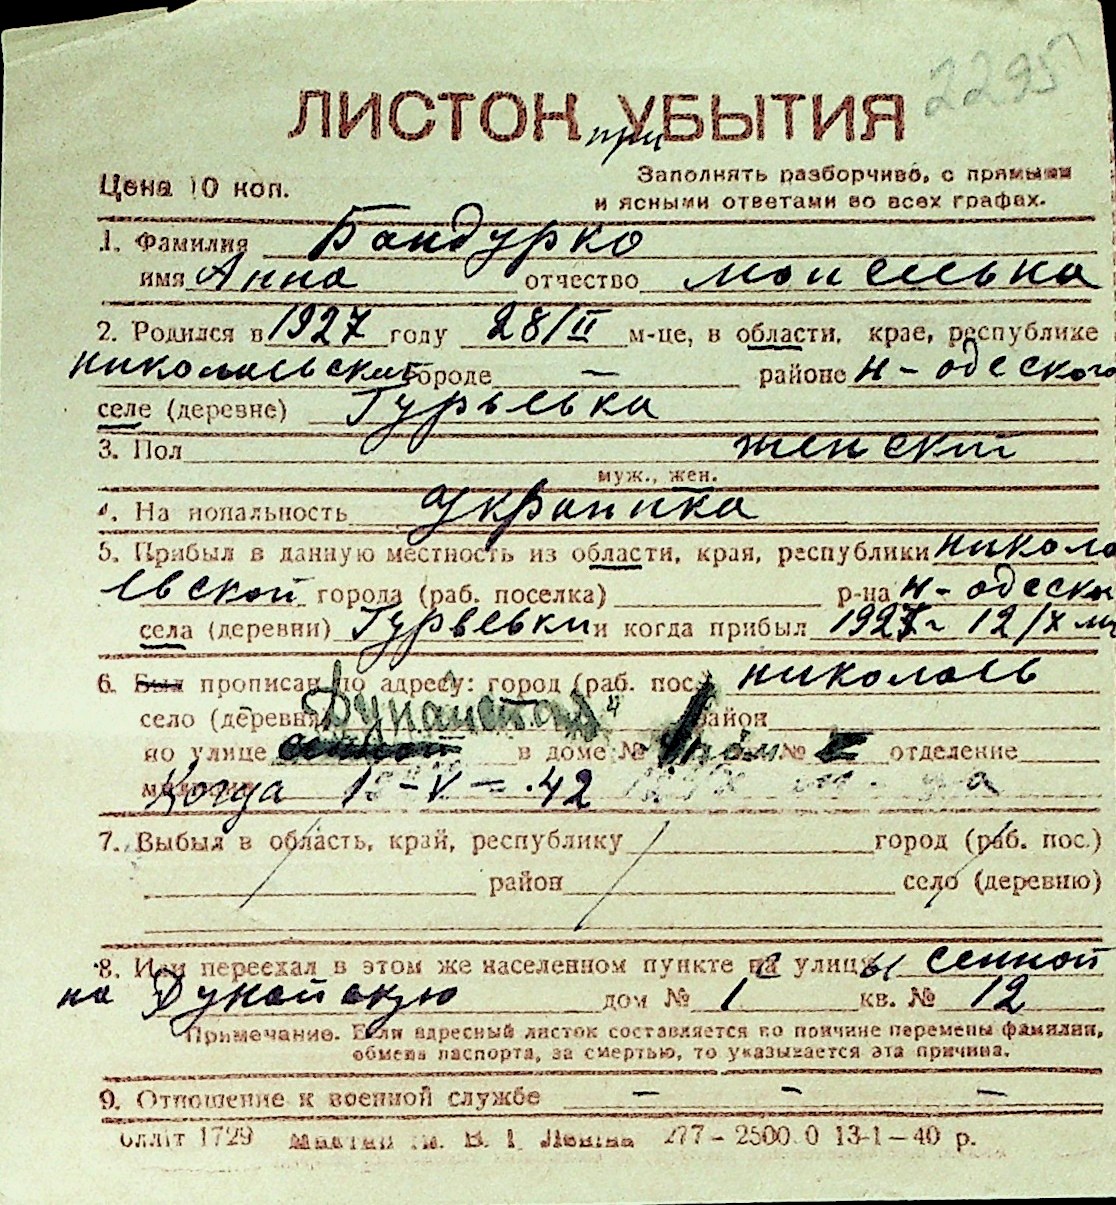 2295
ЛИСТОК при УБЫТИЯ
Цена 10 коп.
Заполнять разборчиво, с прямыми
и ясными ответами во всех графах.
1. Фамилия Бандурко
имя Анна отчество
2. Родился в 1927 году 28/II м-це, в области, крае, республике
николаевской городе — районе н-одеского
селе (деревне) Гурьевка
3. Пол женский
муж., жен.
4. Национальность украинка
5. Прибыл в данную местность из области, края, республики никола
евской города (раб. поселка) р-на н-одеско
села (деревни) Гурьевки и когда прибыл 1927 г 12/X
6. Был прописан по адресу: город (раб. пос.) николаев
село (деревня) Дунайская район
по улице в доме № ком № отделение
милиции Когда 1-V-42
7. Выбыл в область, край, республику город (раб. пос.)
район село (деревню)
8. Или переехал в этом же населенном пункте с улицы сенной
на Дунайскую дом № 1 кв. № 12
Примечание. Если адресный листок составляется по причине перемены фамилии,
обмена паспорта, за смертью, то указывается эта причина.
9. Отношение к военной службе — — —
Олліт 1729 ім. В. І. Леніна 277–2500.0 13-1–40 р.